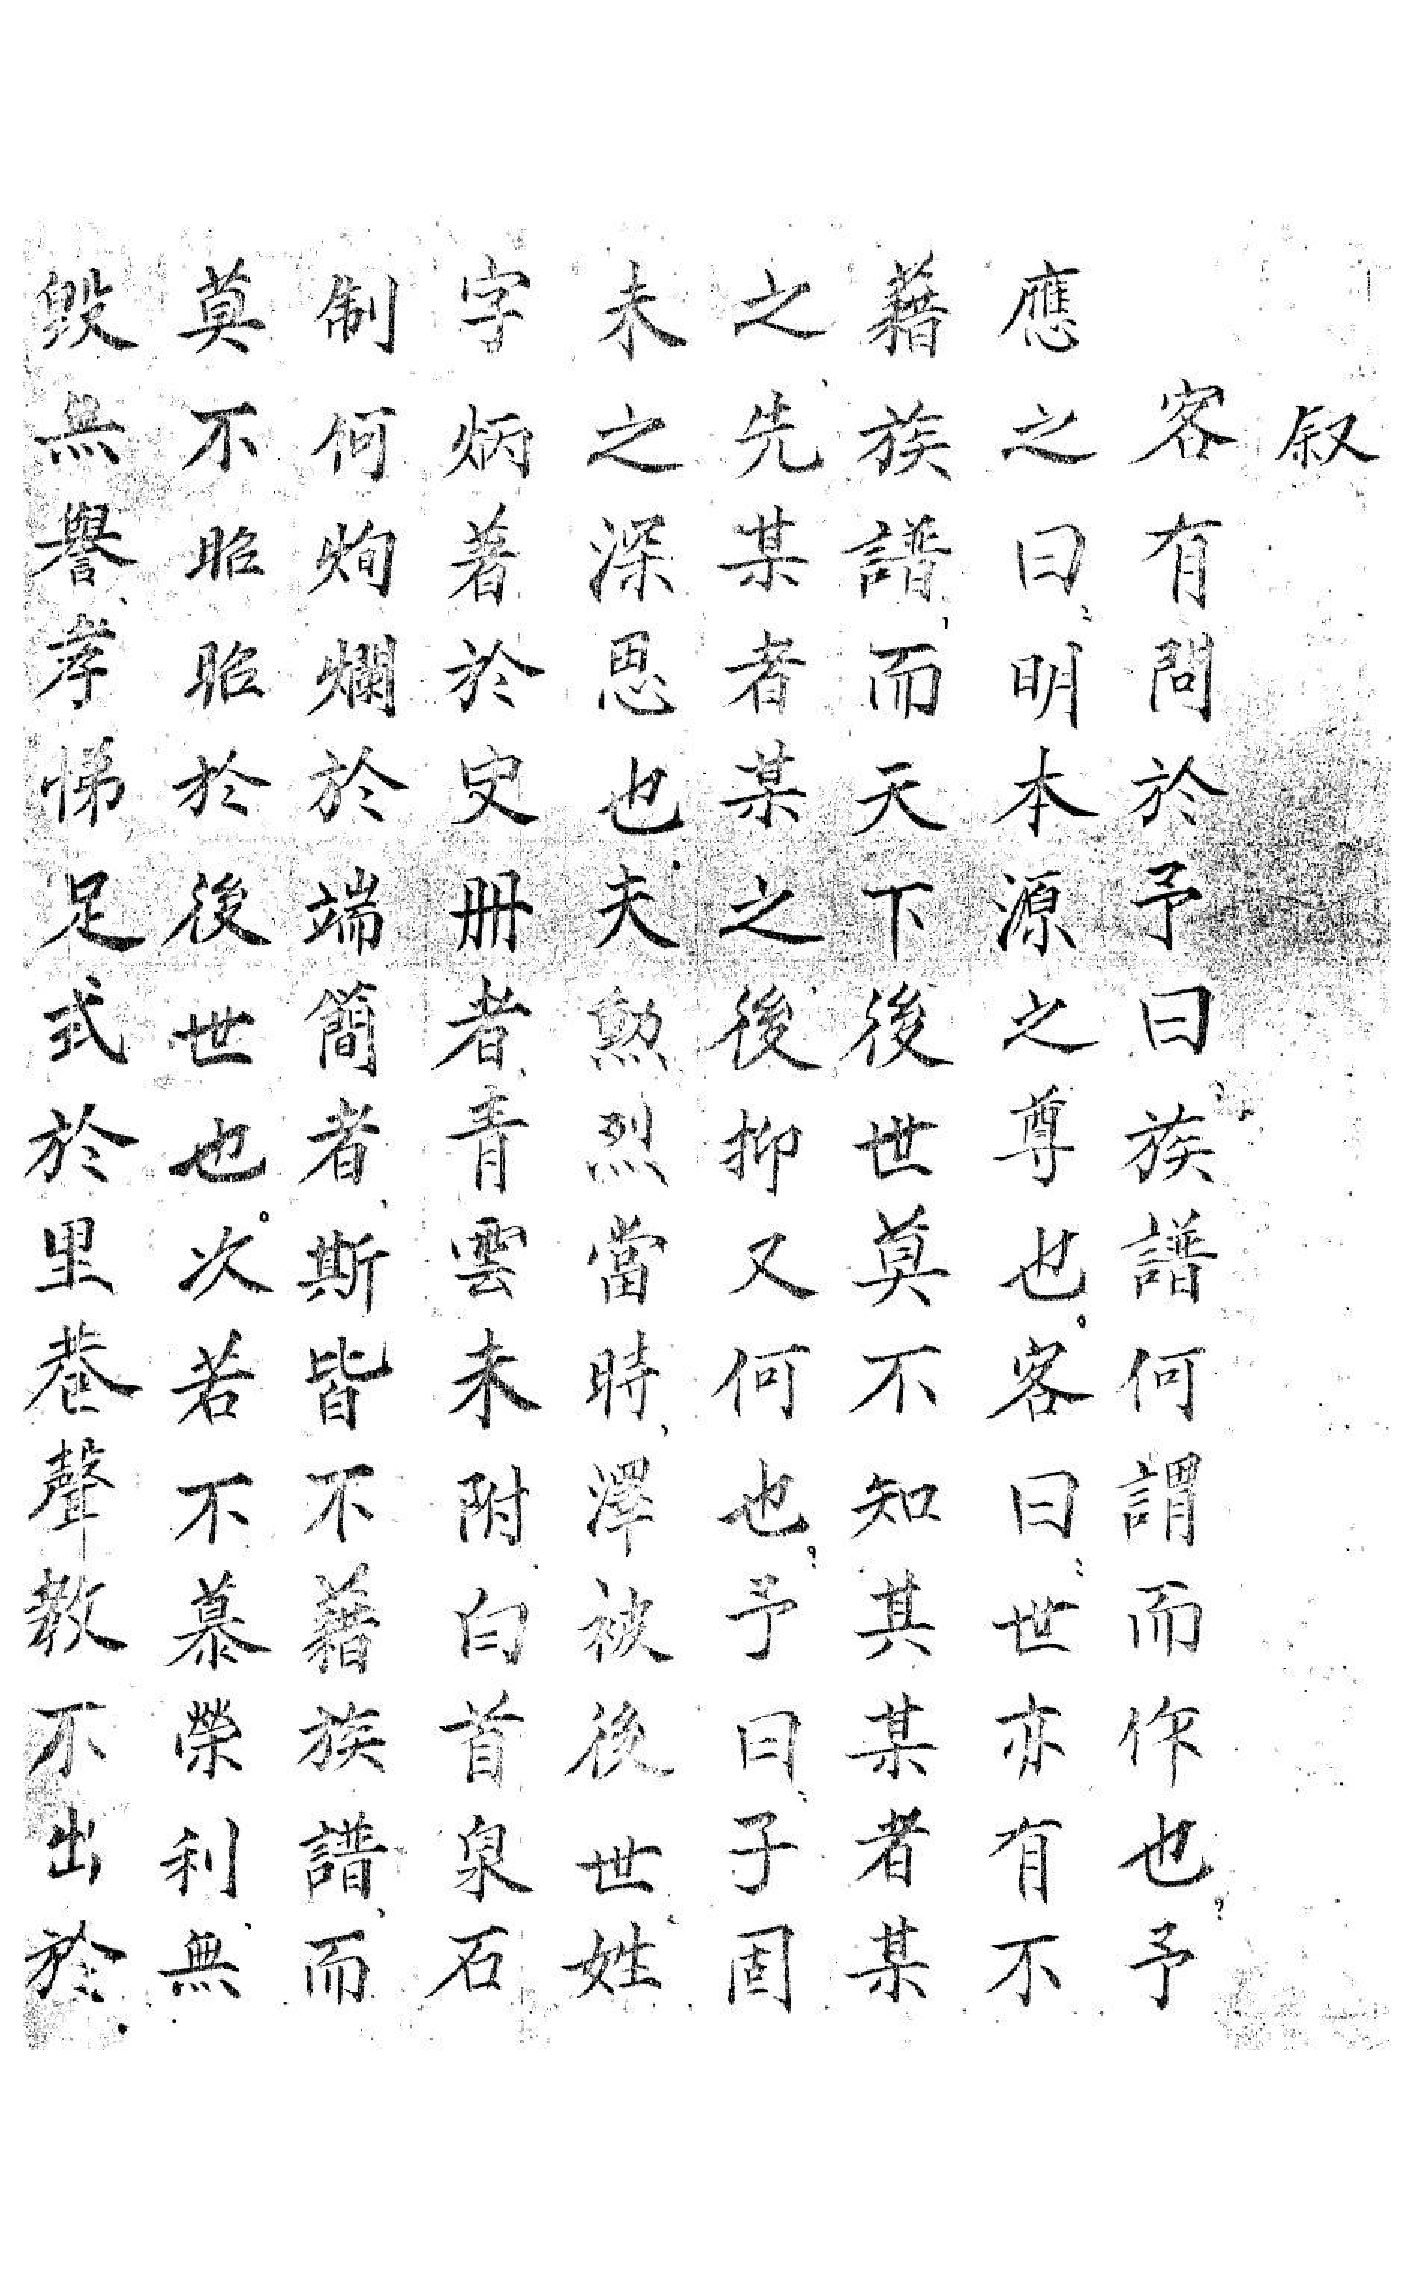 叙
客有問於予曰、族譜何謂而作也？予
應之曰：明本源之尊也。客曰：世亦有不
藉族譜，而天下後世莫不知其某者某
之先、某者某之後、抑又何也？予曰：子固
未之深思也。夫勲烈當時、澤被後世、姓
字炳著於史冊者、青雲未附、白首泉石
制何炳爛於端簡者、斯皆不藉族譜、而
莫不昭昭於後世也。次若不慕榮利、無
毀無譽、孝悌足式於里巷聲教不出於